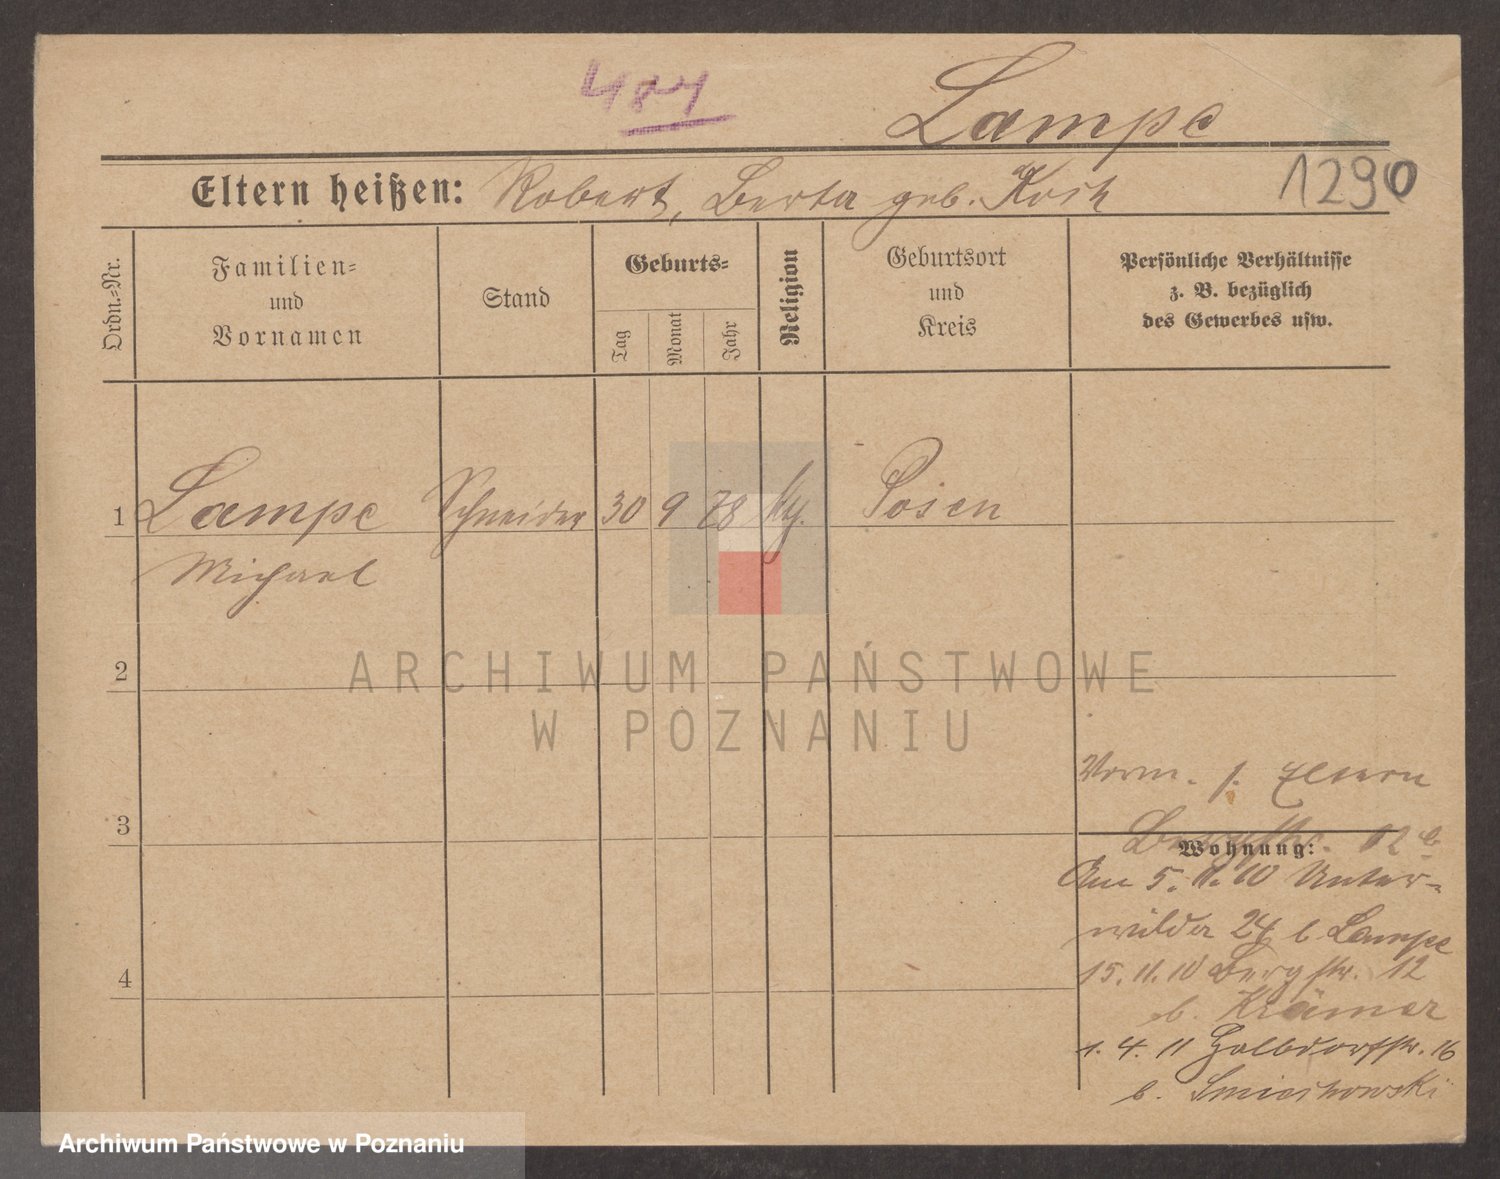 484
Lampe
1290
Eltern heißen: Robert, Berta geb. Koch
Ordn.-Nr.
Familien-
und
Vornamen
Stand
Geburts-
Tag
Monat
Jahr
Religion
Geburtsort
und
Kreis
Persönliche Verhältnisse
z. B. bezüglich
des Gewerbes usw.
1 Lampe Schneider 30 9 78 Posen
Michael
2
ARCHIWUM PAŃSTWOWE
W POZNANIU
Eltern
3
12
Wohnung:
Am 5. 11. 10 Unter-
wilda 24 b Lampe
15. 11. 10 Bergstr. 12
b. Krämer
4
1. 4. 11 Halbdorfstr. 16
b.
Archiwum Państwowe w Poznaniu